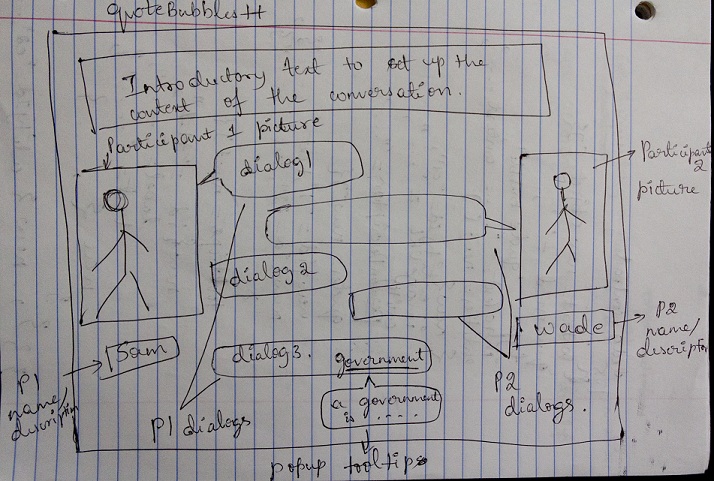 quoteBubbles++
Introductory text to set up the
context of the conversation.
Participant 1 picture
dialog1
Participant
2
picture
dialog 2
Sam
wade
P2
name/
descriptor
P1
name/
description
dialog3. government
a government
is ....
P1 dialogs
P2
dialogs.
popup tooltips